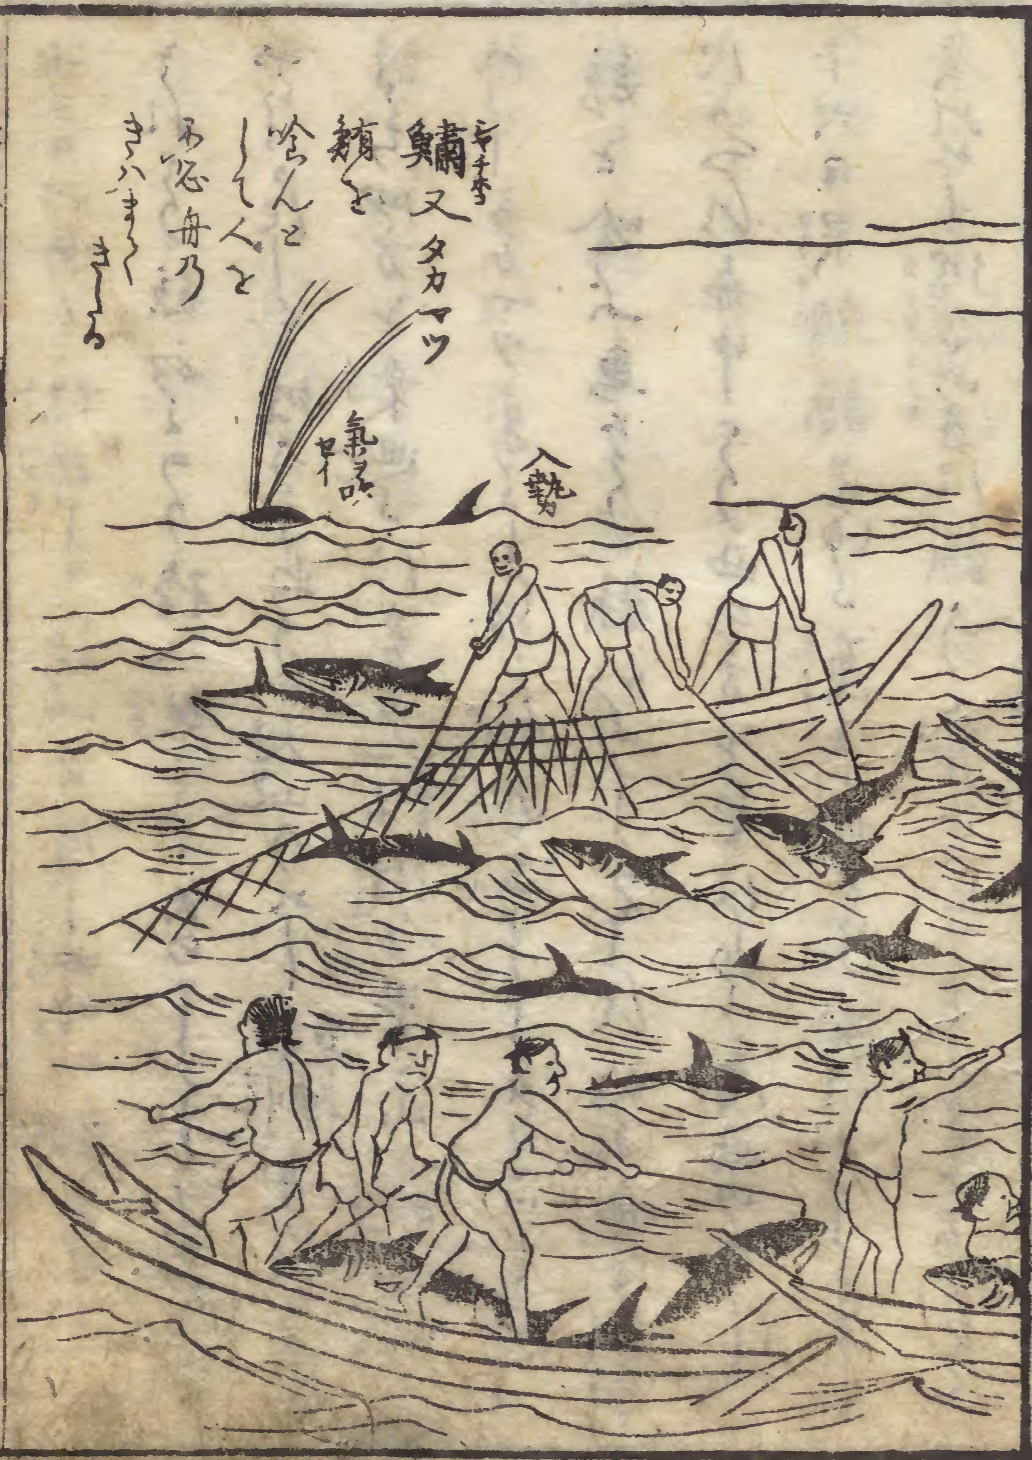 シヤチホコ
鱐又タカマツ
鮪を
喰んと
して人を
不恐舟乃
きハまて
きたる
氣ヲ吹
セイ
入勢